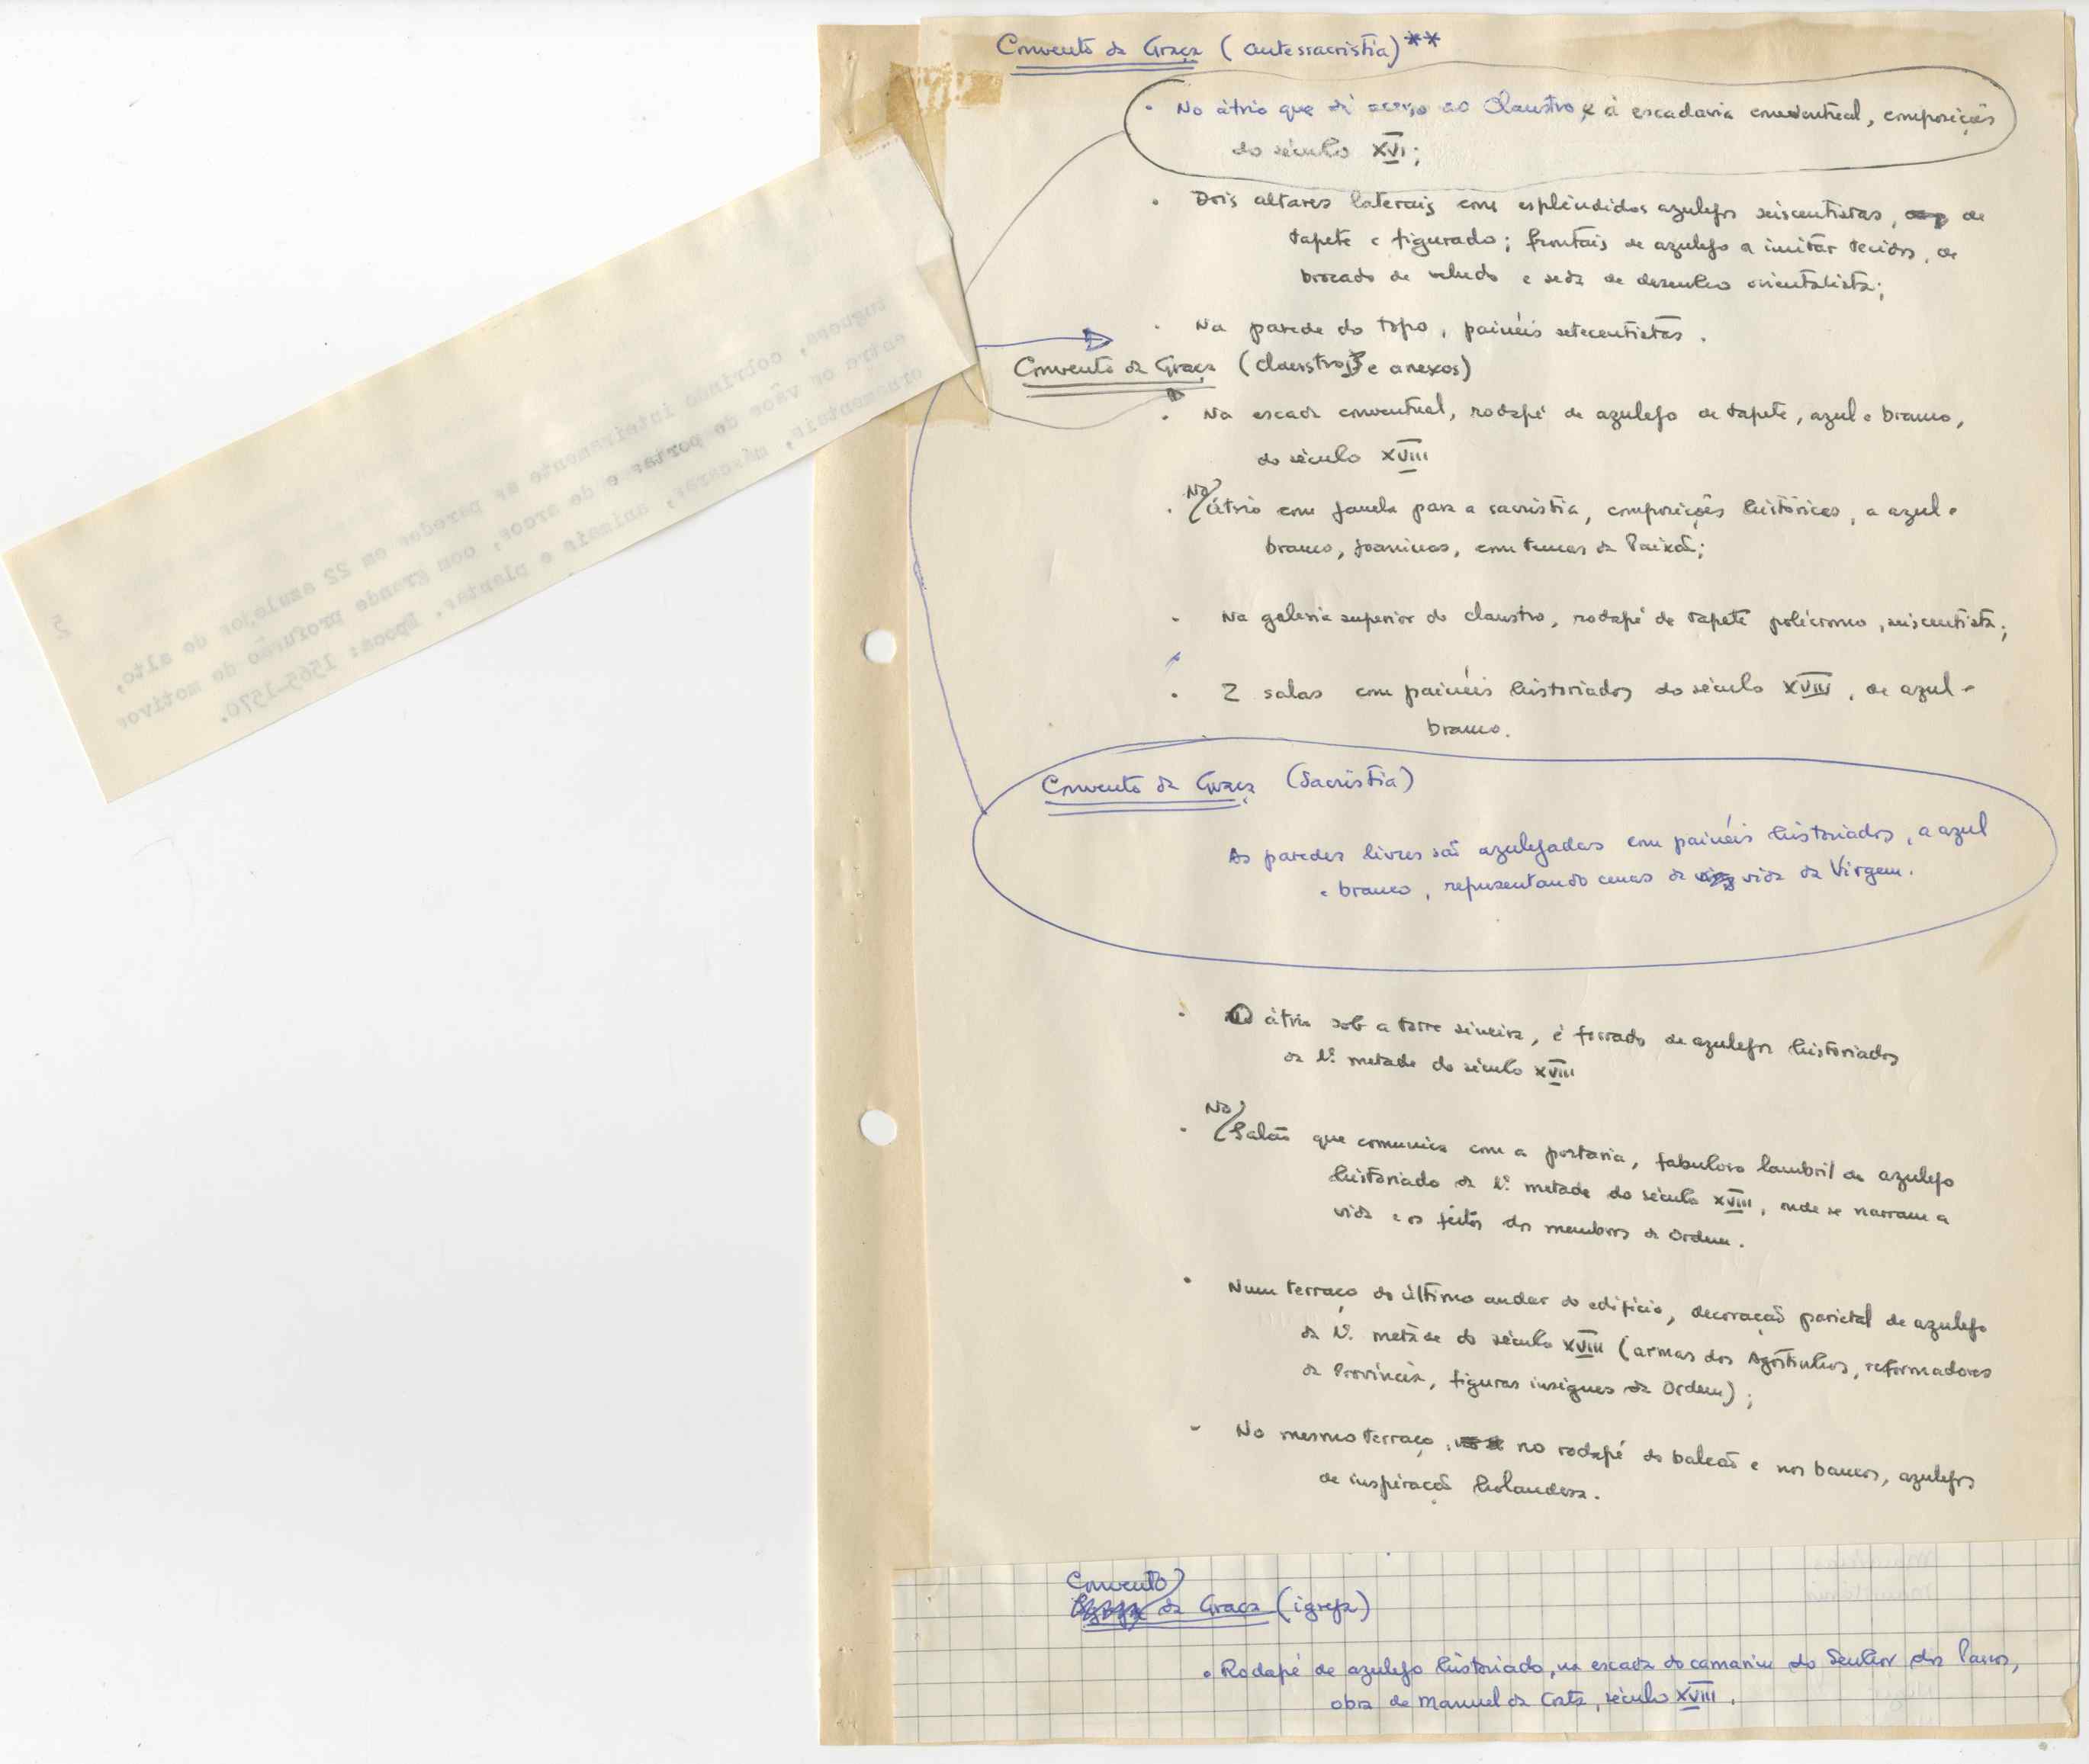 Convento da Graça (antessacristia)**
• No átrio que dá acesso ao Claustro e à escadaria conventual, composições
do século XVI;
• Dois altares laterais com esplêndidos azulejos seiscentistas, de
tapete e figurado; frontais de azulejo a imitar tecidos, de
brocado de veludo e seda de desenho orientalista;
• Na parede do topo, painéis setecentistas.
Convento da Graça (claustro e anexos)
• Na escada conventual, rodapé de azulejo de tapete, azul e branco,
do século XVIII
No
• átrio com janela para a sacristia, composições históricas, a azul e
branco, joaninas, com temas da Paixão;
• Na galeria superior do claustro, rodapé de tapete polícromo, seiscentista;
• 2 salas com painéis historiados do século XVIII, de azul e
branco.
Convento da Graça (Sacristia)
As paredes livres são azulejadas com painéis historiados, a azul
e branco, representando cenas da vida da Virgem.
• O átrio sob a torre sineira, é forrado de azulejos historiados
da 1ª metade do século XVIII
No
• Salão que comunica com a portaria, fabuloso lambril de azulejo
historiado da 1ª metade do século XVIII, onde se narram a
vida e os feitos dos membros da Ordem.
• Num terraço do último andar do edifício, decoração parietal de azulejo
da 1ª metade do século XVIII (armas dos Agostinhos, reformadores
da Província, figuras insignes da Ordem);
- No mesmo terraço, no rodapé do balcão e nos bancos, azulejos
de inspiração holandesa.
Convento
da Graça (igreja)
• Rodapé de azulejo historiado, na escada do camarim do Senhor dos Passos,
obra de Manuel da Costa, século XVIII.
5
, cobrindo inteiramente as paredes em 22 azulejos de alto,
entre os vãos de portas e de arcos, com grande profusão de motivos
ornamentais, máscaras, animais e plantas. Época: 1565-1570.